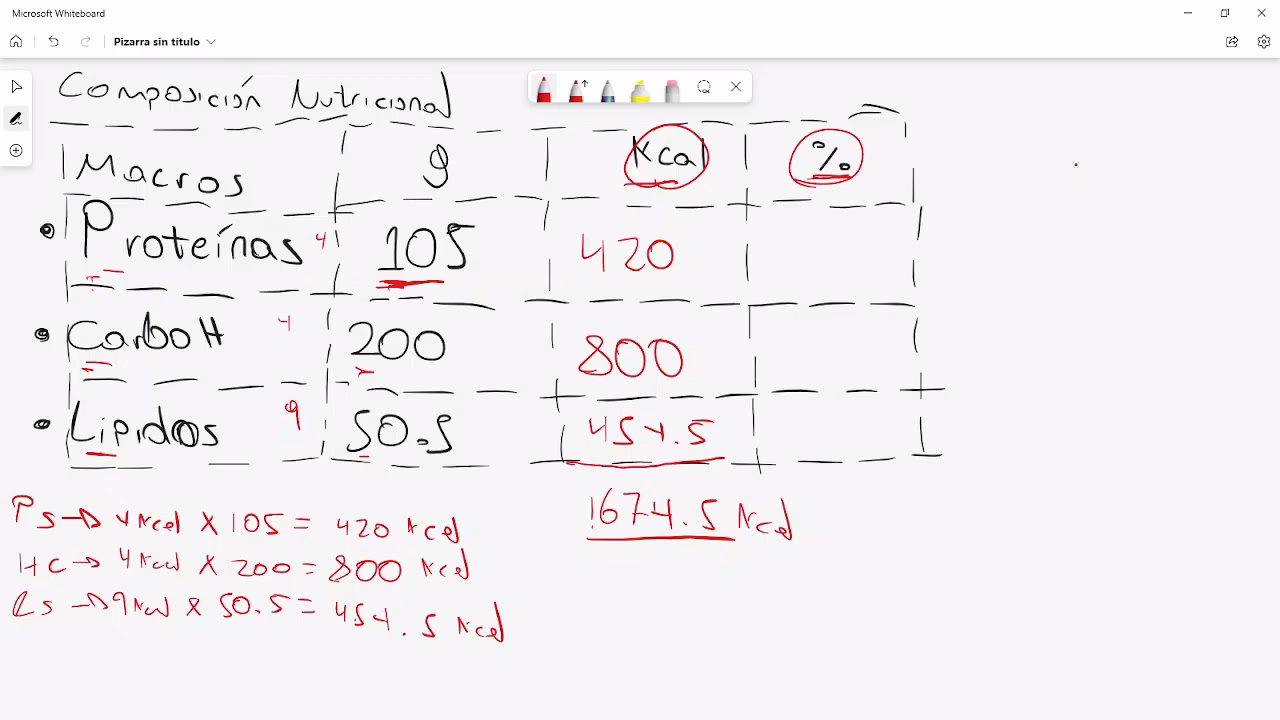 Microsoft Whiteboard
Pizarra sin título
Composición Nutricional
Macros g Kcal %
Proteínas 4 105 420
CarboH 4 200 800
Lipidos 9 50.5 454.5
1674.5 Kcal
Ps → 4 Kcal x 105 = 420 Kcal
HC → 4 Kcal x 200 = 800 Kcal
Ls → 9 Kcal x 50.5 = 454.5 Kcal